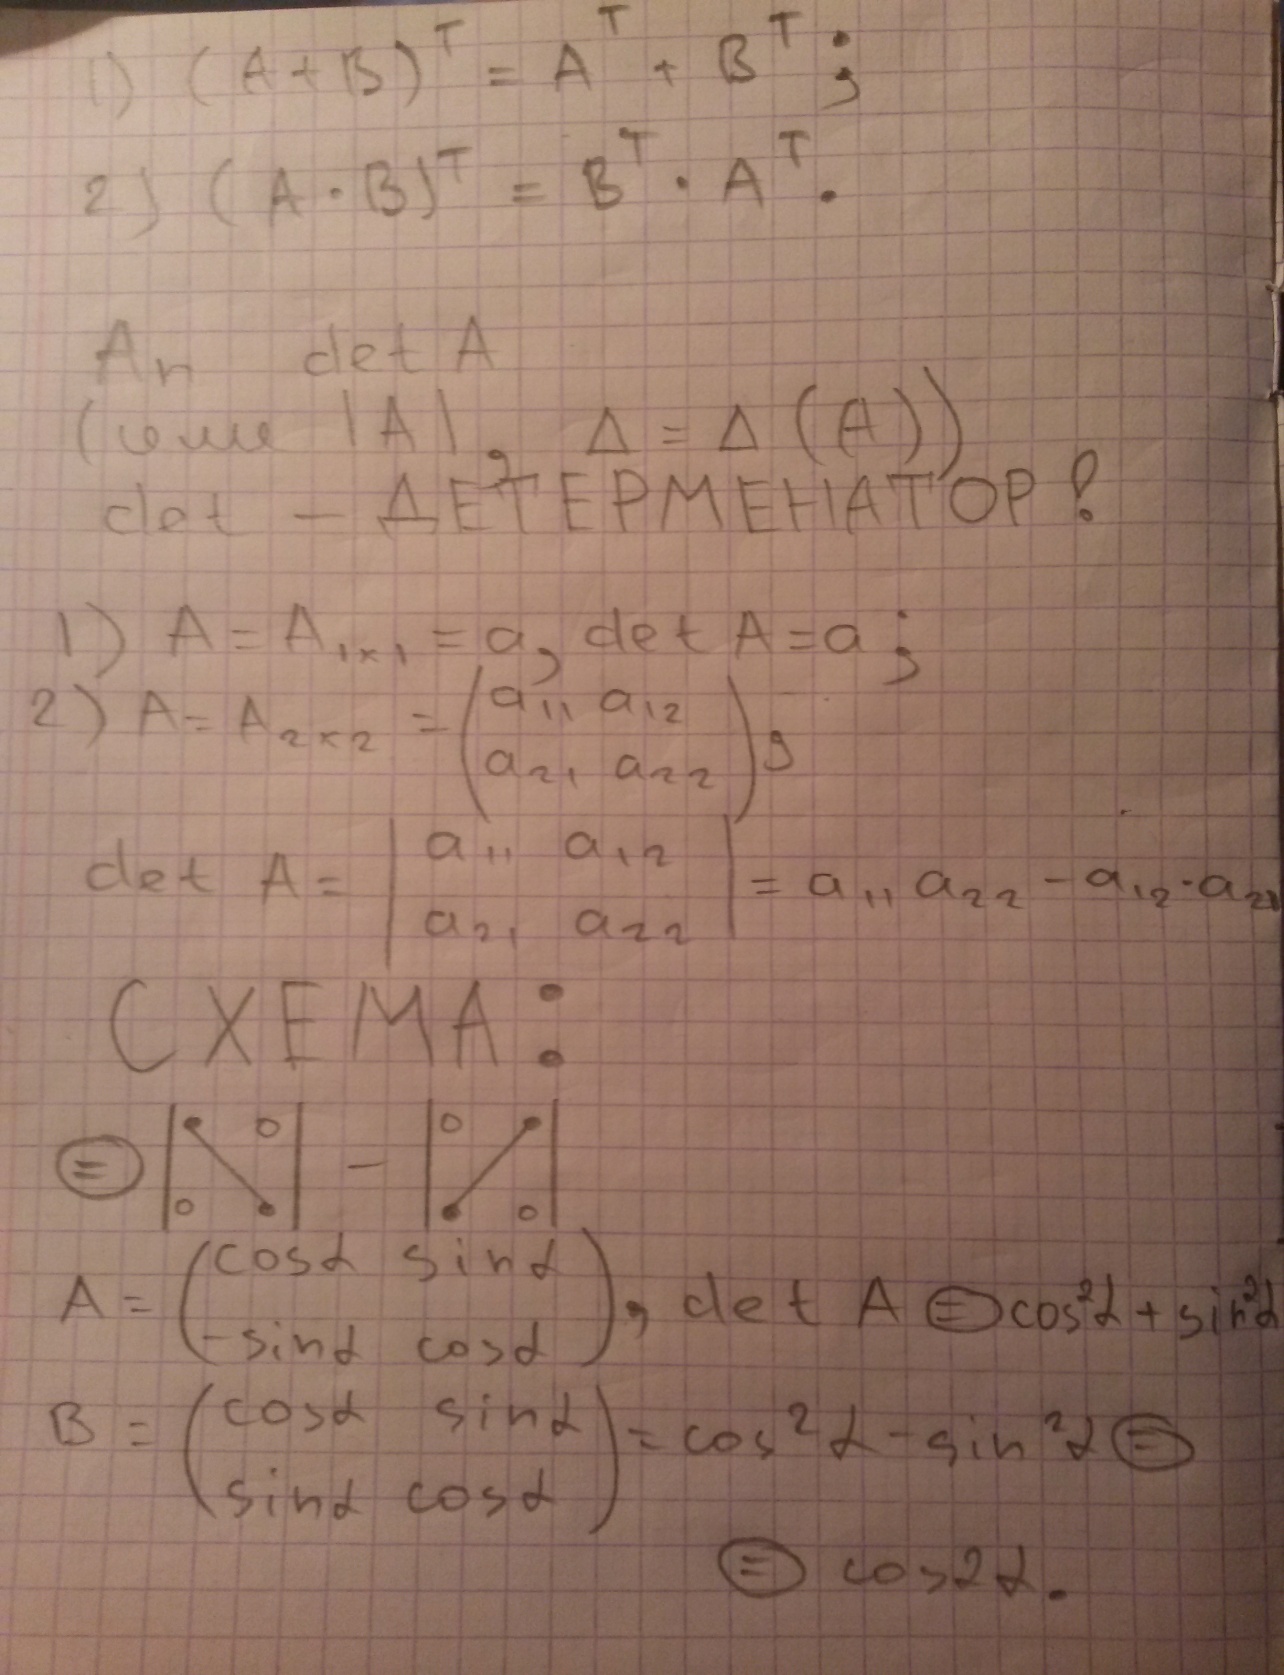 1) (A+B)ᵀ = Aᵀ + Bᵀ;
2) (A·B)ᵀ = Bᵀ · Aᵀ.
Aₙ det A
(или |A|, Δ = Δ(A))
det – ДЕТЕРМЕНАТОР!
1) A = A₁ₓ₁ = a, det A = a;
2) A = A₂ₓ₂ = (a₁₁ a₁₂
a₂₁ a₂₂),
det A = |a₁₁ a₁₂
a₂₁ a₂₂| = a₁₁ a₂₂ - a₁₂·a₂₁
СХЕМА:
⊜ | | – | |
A = (cosα sinα
-sinα cosα), det A ⊜ cos²α + sin²α
B = (cosα sinα
sinα cosα) = cos²α - sin²α ⊜
⊜ cos2α.